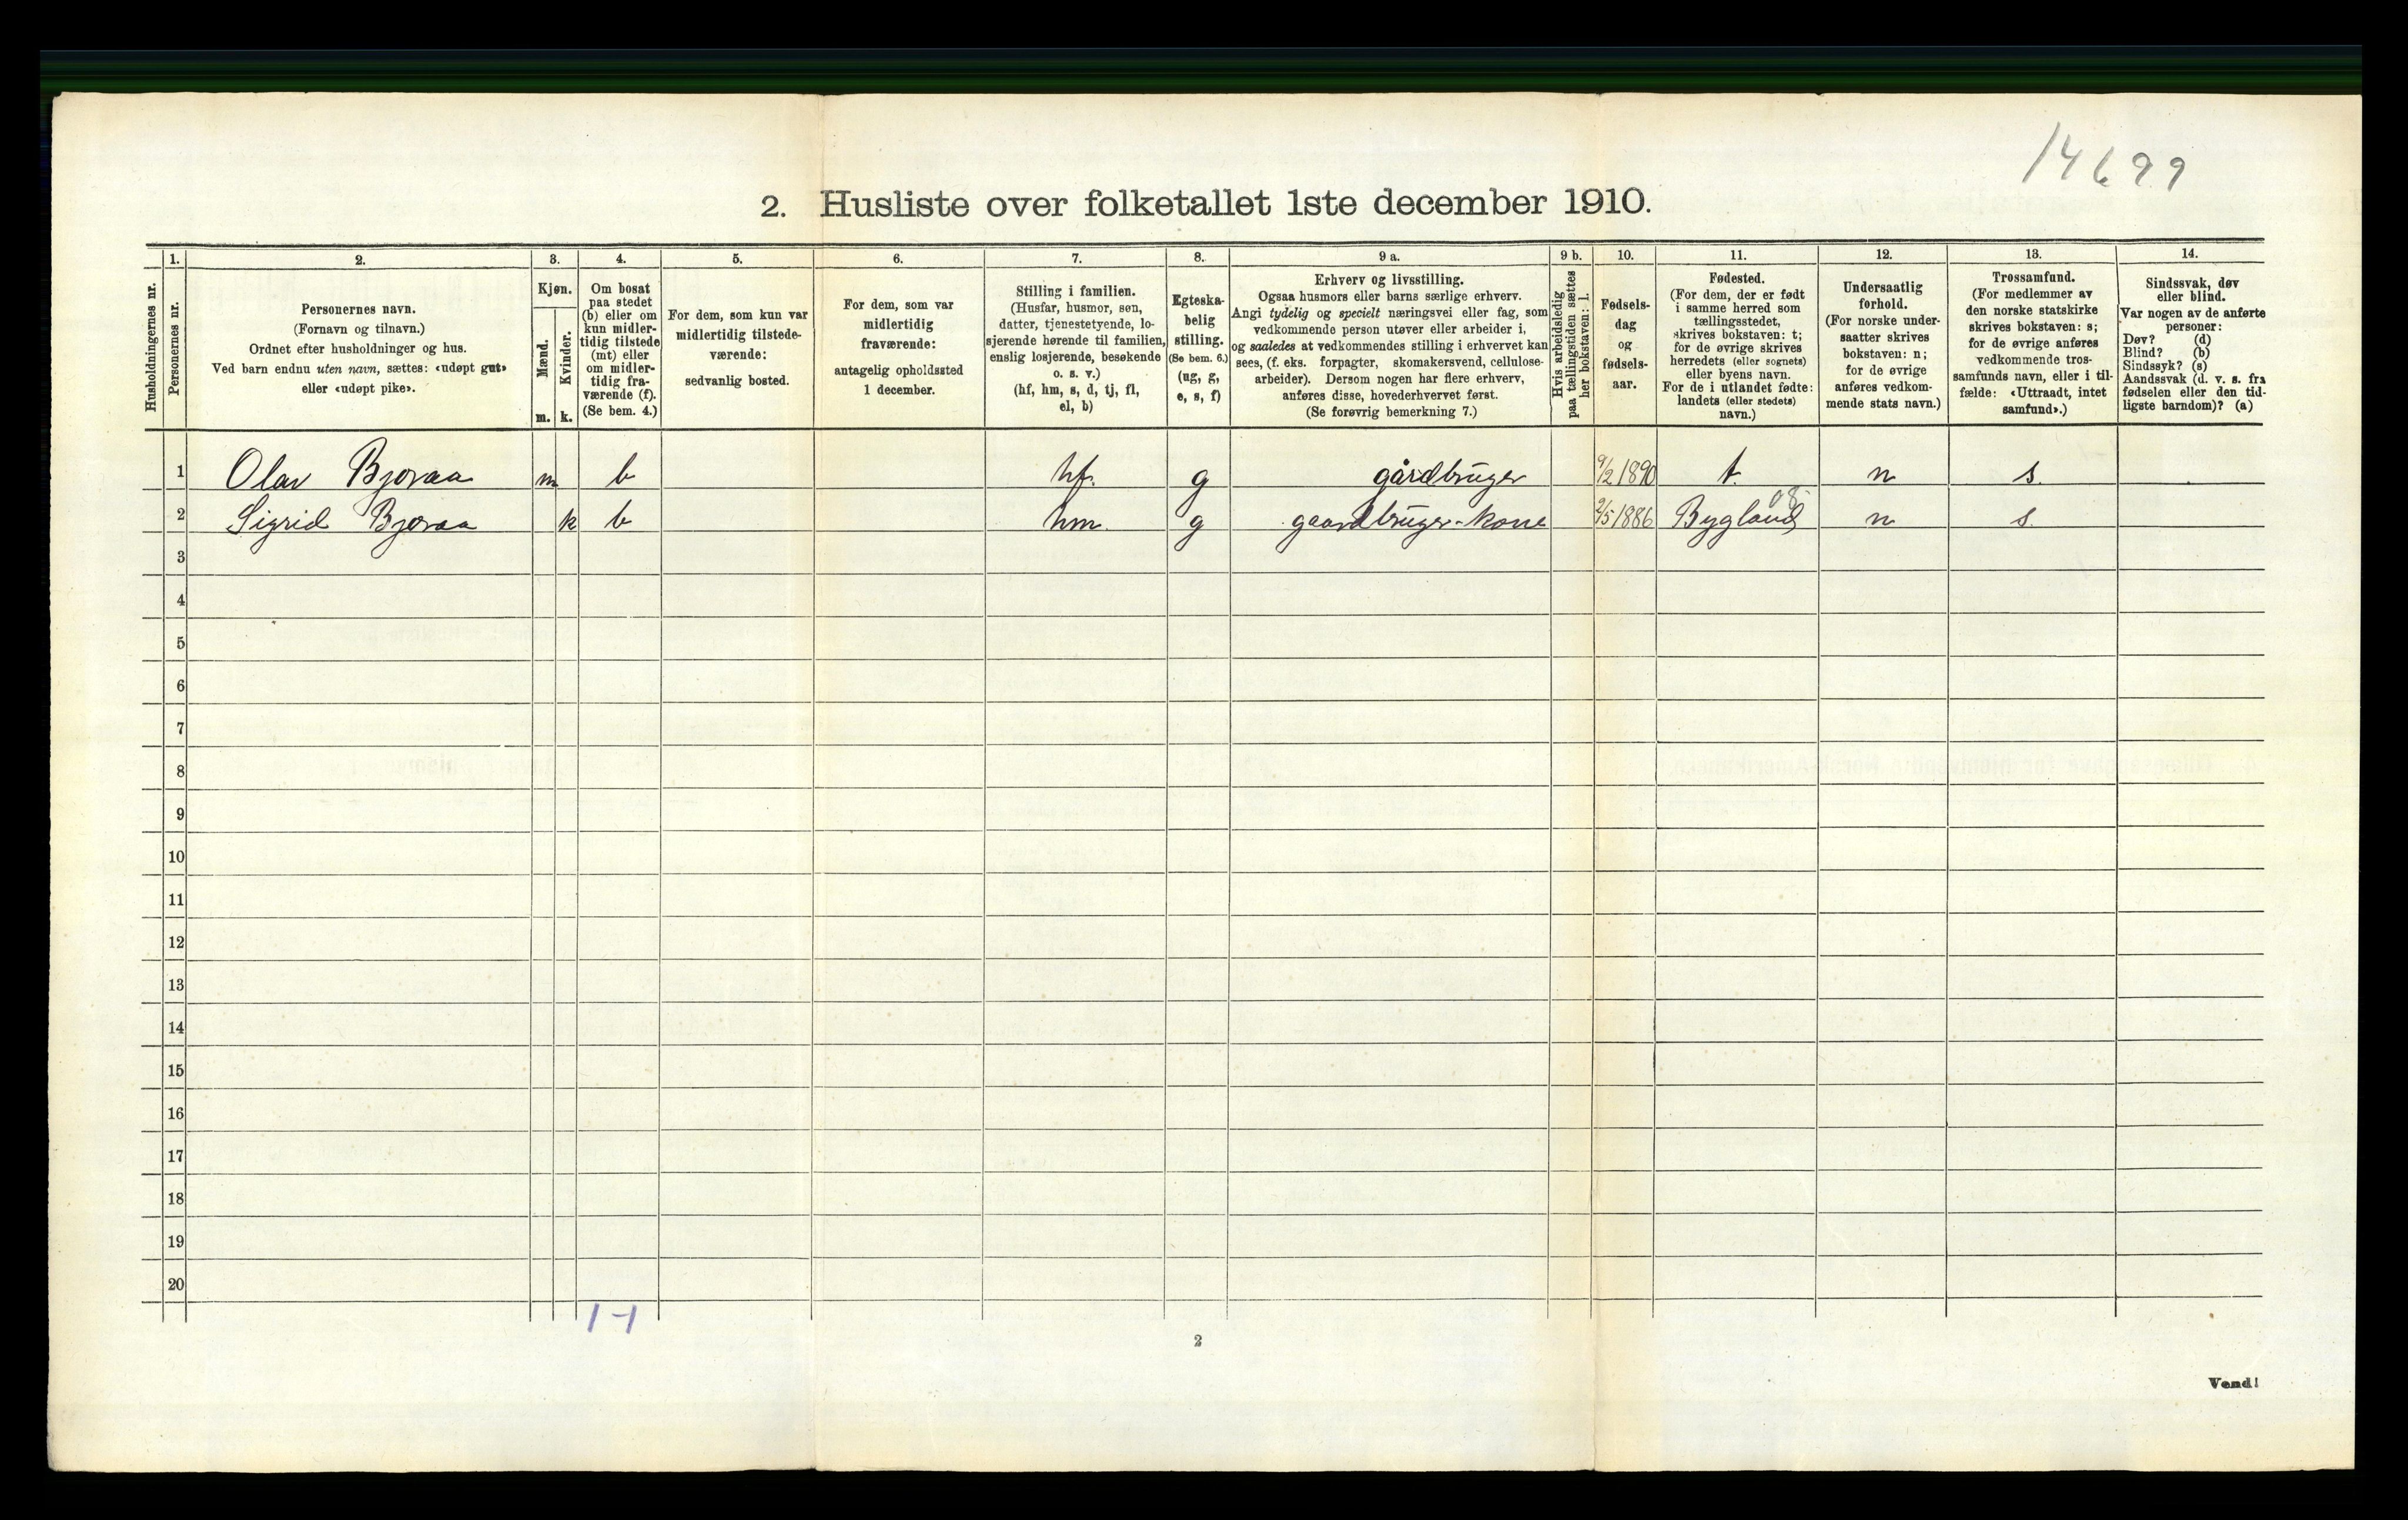 14699
2. Husliste over folketallet 1ste december 1910.
Husholdningernes nr.
1.
Personernes nr.
2.
Personernes navn.
(Fornavn og tilnavn.)
Ordnet efter husholdninger og hus.
Ved barn endnu uten navn, sættes: «udøpt gut»
eller «udøpt pike».
3.
Kjøn.
Mænd.
m.
Kvinder.
k.
4.
Om bosat
paa stedet
(b) eller om
kun midler-
tidig tilstede
(mt) eller
om midler-
tidig fra-
værende (f).
(Se bem. 4.)
5.
For dem, som kun var
midlertidig tilstede-
værende:
sedvanlig bosted.
6.
For dem, som var
midlertidig
fraværende:
antagelig opholdssted
1 december.
7.
Stilling i familien.
(Husfar, husmor, søn,
datter, tjenestetyende, lo-
sjerende hørende til familien,
enslig losjerende, besøkende
o. s. v.)
(hf, hm, s, d, tj, fl,
el, b)
8.
Egteska-
belig
stilling.
(Se bem. 6.)
(ug, g,
e, s, f)
9 a.
Erhverv og livsstilling.
Ogsaa husmors eller barns særlige erhverv.
Angi tydelig og specielt næringsvei eller fag, som
vedkommende person utøver eller arbeider i,
og saaledes at vedkommendes stilling i erhvervet kan
sees, (f. eks. forpagter, skomakersvend, cellulose-
arbeider). Dersom nogen har flere erhverv,
anføres disse, hovederhvervet først.
(Se forøvrig bemerkning 7.)
9 b.
Hvis arbeidsledig
paa tællingstiden sættes
her bokstaven: l.
10.
Fødsels-
dag
og
fødsels-
aar.
11.
Fødested.
(For dem, der er født
i samme herred som
tællingsstedet,
skrives bokstaven: t;
for de øvrige skrives
herredets (eller sognets)
eller byens navn.
For de i utlandet fødte:
landets (eller stedets)
navn.)
12.
Undersaatlig
forhold.
(For norske under-
saatter skrives
bokstaven: n;
for de øvrige
anføres vedkom-
mende stats navn.)
13.
Trossamfund.
(For medlemmer av
den norske statskirke
skrives bokstaven: s;
for de øvrige anføres
vedkommende tros-
samfunds navn, eller i til-
fælde: «Uttraadt, intet
samfund».)
14.
Sindssvak, døv
eller blind.
Var nogen av de anførte
personer:
Døv? (d)
Blind? (b)
Sindssyk? (s)
Aandssvak (d. v. s. fra
fødselen eller den tid-
ligste barndom)? (a)
1 Olav Bjoraa m b hf. g gårdbruger 9/2 1890 t. n s.
08-
2 Sigrid Bjoraa k b hm. g gaardbruger-kone 2/5 1886 Bygland n s.
3
4
5
6
7
8
9
10
11
12
13
14
15
16
17
18
19
20
1-1
2
Vend!